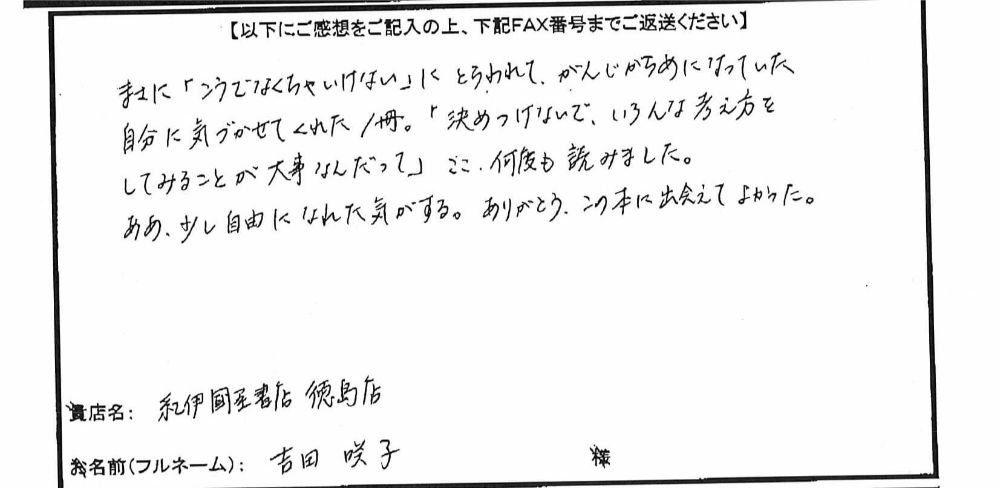 【以下にご感想をご記入の上、下記FAX番号までご返送ください】
まさに「こうでなくちゃいけない」に とらわれて、がんじがらめになっていた
自分に気づかせてくれた1冊。「決めつけないで、いろんな考え方を
してみることが大事なんだって」ここ、何度も読みました。
ああ、少し自由になれた気がする。ありがとう、この本に出会えてよかった。
貴店名： 紀伊國屋書店 徳島店
お名前(フルネーム)： 吉田 咲子 様